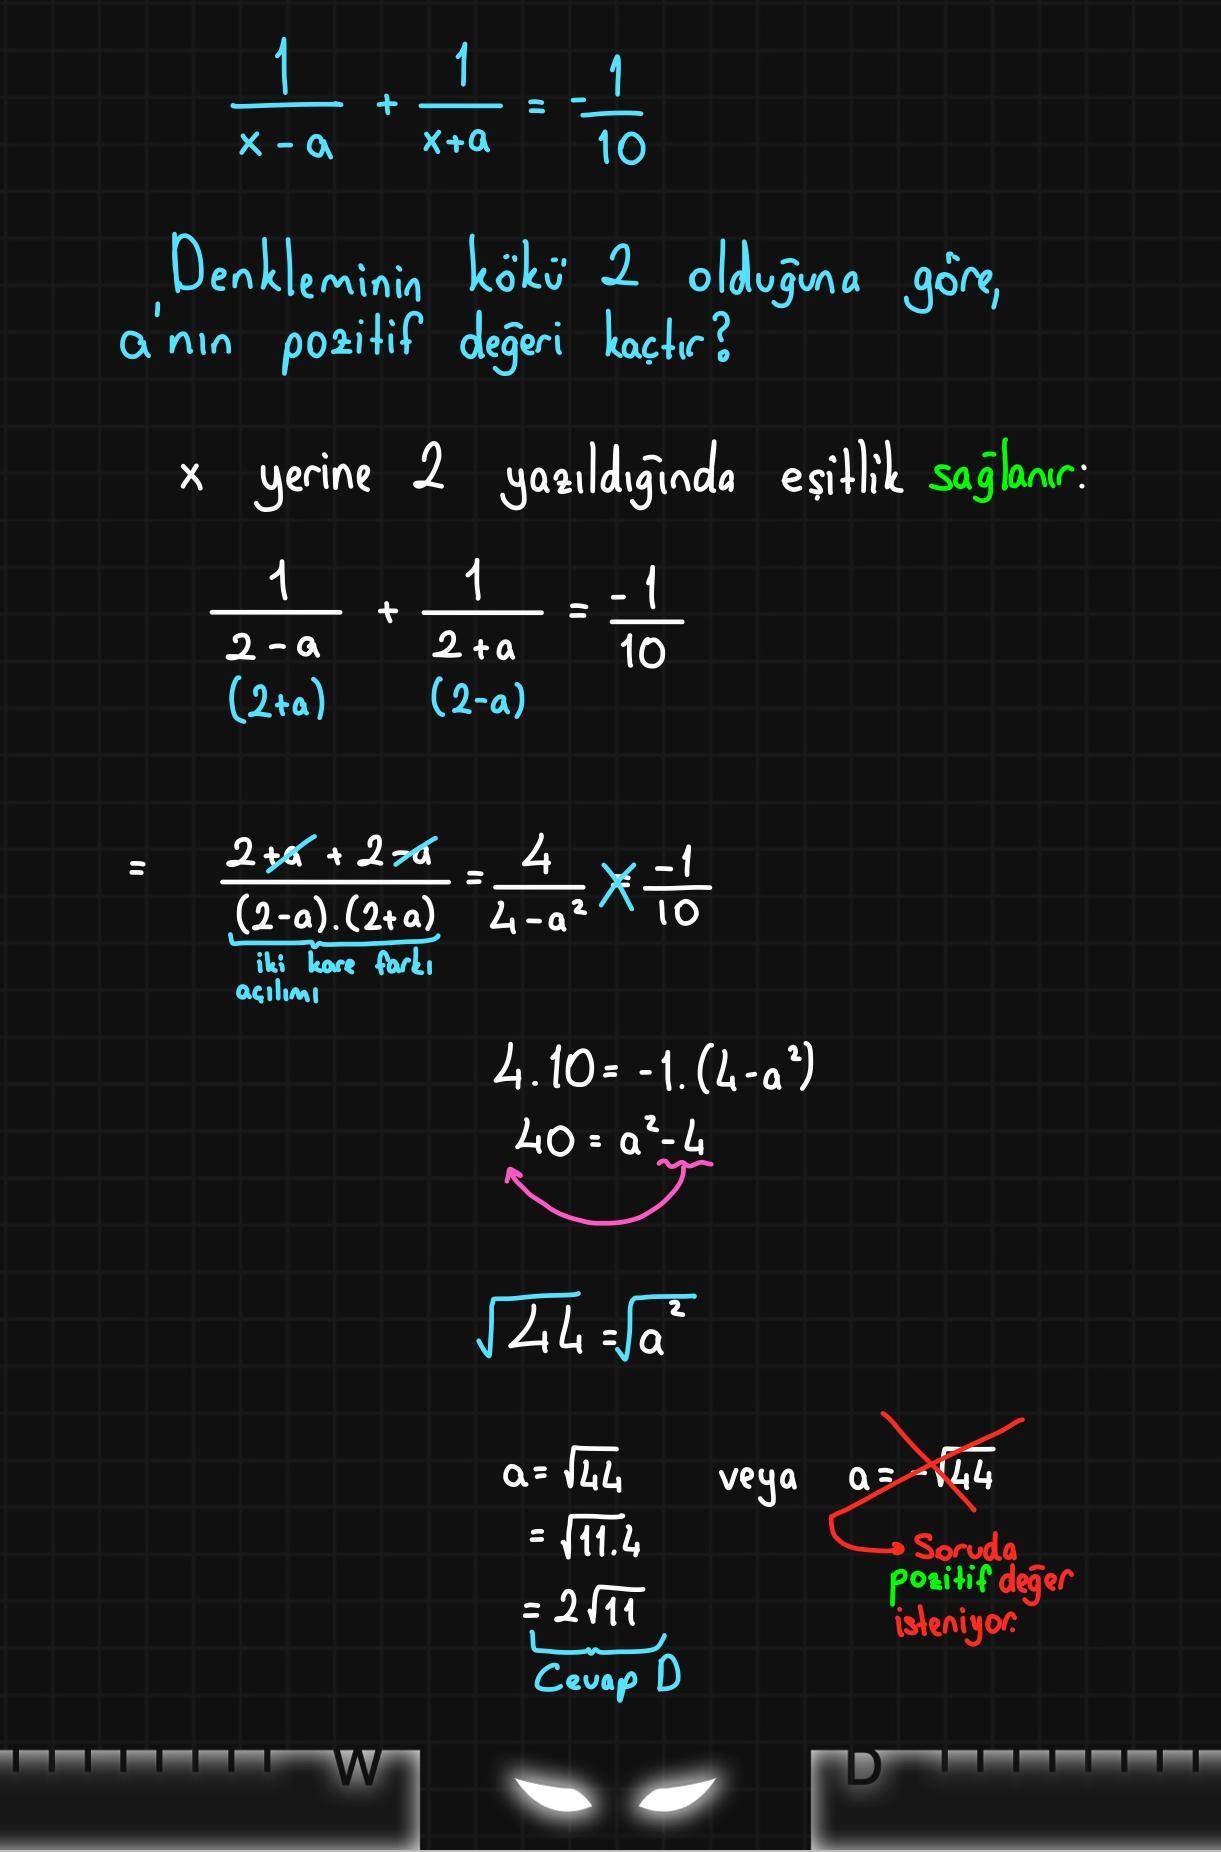 1/(x-a) + 1/(x+a) = -1/10
Denkleminin kökü 2 olduğuna göre,
a'nın pozitif değeri kaçtır?
x yerine 2 yazıldığında eşitlik sağlanır:
1/(2-a) + 1/(2+a) = -1/10
(2+a) (2-a)
= (2+a + 2-a)/((2-a).(2+a)) = 4/(4-a²) = -1/10
iki kare farkı
açılımı
4.10 = -1.(4-a²)
40 = a²-4
√44 = √a²
a = √44 veya a = -√44
= √11.4
Soruda
pozitif değer
= 2√11
isteniyor.
Cevap D
W D